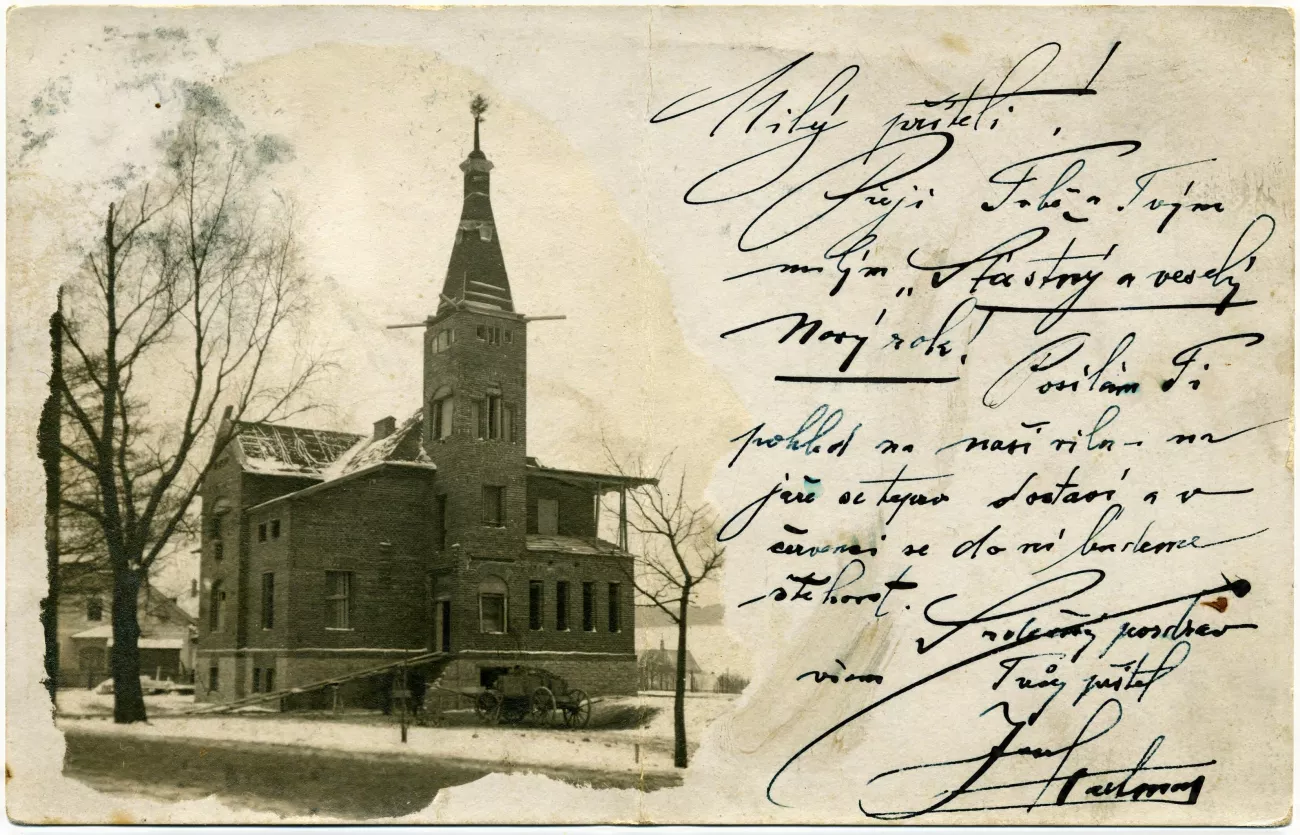 Milý příteli!
Přeji Tobě a Tvým
milým „Šťastný a veselý
Nový rok!
Posílám Ti
pohled na naši vilu – na
jaře se teprv dostaví a v
červenci se do ní budeme
stěhovat.
Srdečný pozdrav
všem Tvůj přítel
Josef Hartman